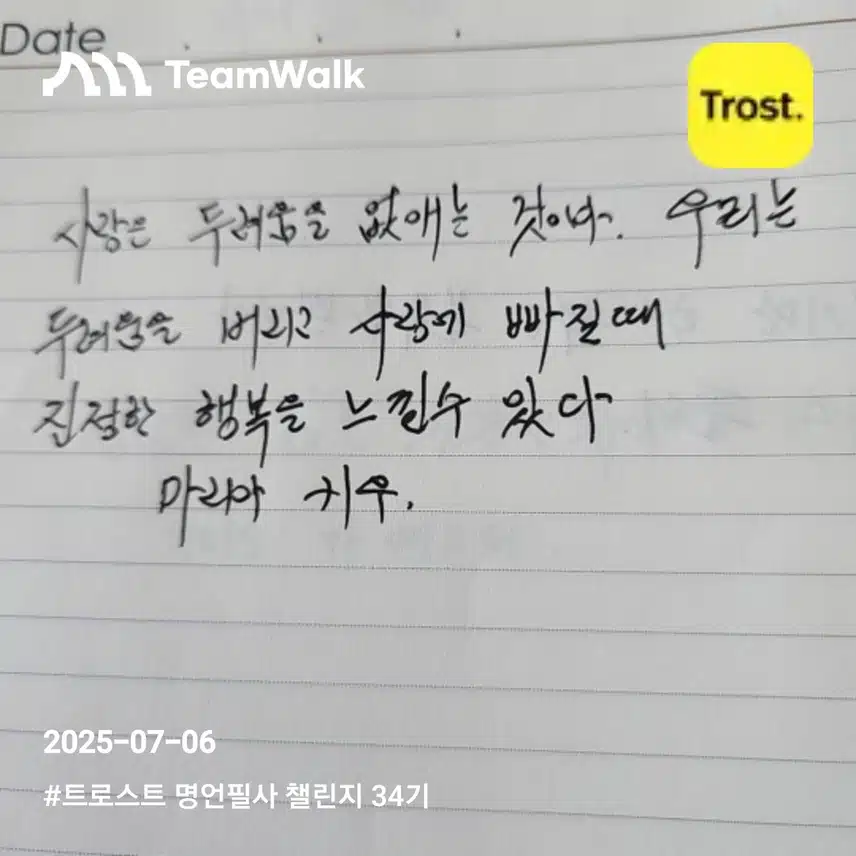 Date
TeamWalk
Trost.
사랑은 두려움을 없애는 것이다. 우리는
두려움을 버리고 사랑에 빠질때
진정한 행복을 느낄수 있다
마리아 키우.
2025-07-06
#트로스트 명언필사 챌린지 34기